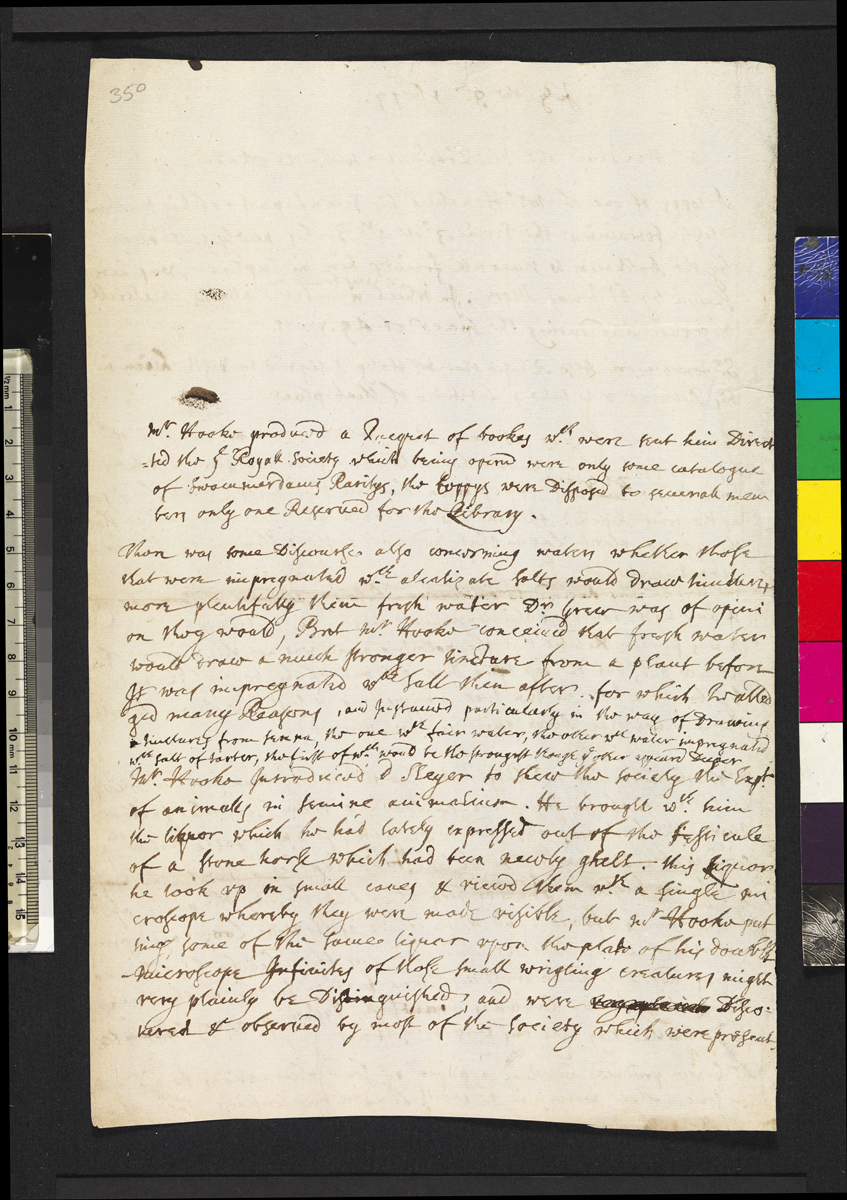 350
Mr. Hooke produced a Pacquet of bookes wch were sent him Direct
-ted the ye Royall Society which being opend were only some catalogue
of Swammerdams Raritys, the Coppys were Disposed to severall mem
bers only one Reserved for the Library.
There was some Discourse also concerning waters whether those
that were impregnated wth alcalizate salts would draw tinctures
more plentifully then fresh water Dr. Grew was of opini
on they would, But Mr Hooke conceived that fresh water
would draw a much stronger tincture from a plant before
It was impregnated wth salt then after. for which he alled
ged many Reasons, and Instanced particularly in the way of Drawing
tinctures from senna, the one wth fair water, the other wth water impregnated
wth salt of tarter, the first of wch would be the strongest though ye other appeard Deeper
Mr. Hooke Introduced d Sleyer to shew the society the Expt.
of animalls in semine animalium. He brought wth him
the liquor which he had lately expressed out of the testicule
of a stone horse which had been newly ghelt. this Liquor
he took up in small canes & viewd them wth a single mi
croscope whereby they were made visible, but Mr Hooke put
ting some of the same liquor upon the plate of his double
Microscope Infinites of those small wrigling creatures might
very plainly be Distinguished, and were Disco=
vered & observed by most of the Society which were present.